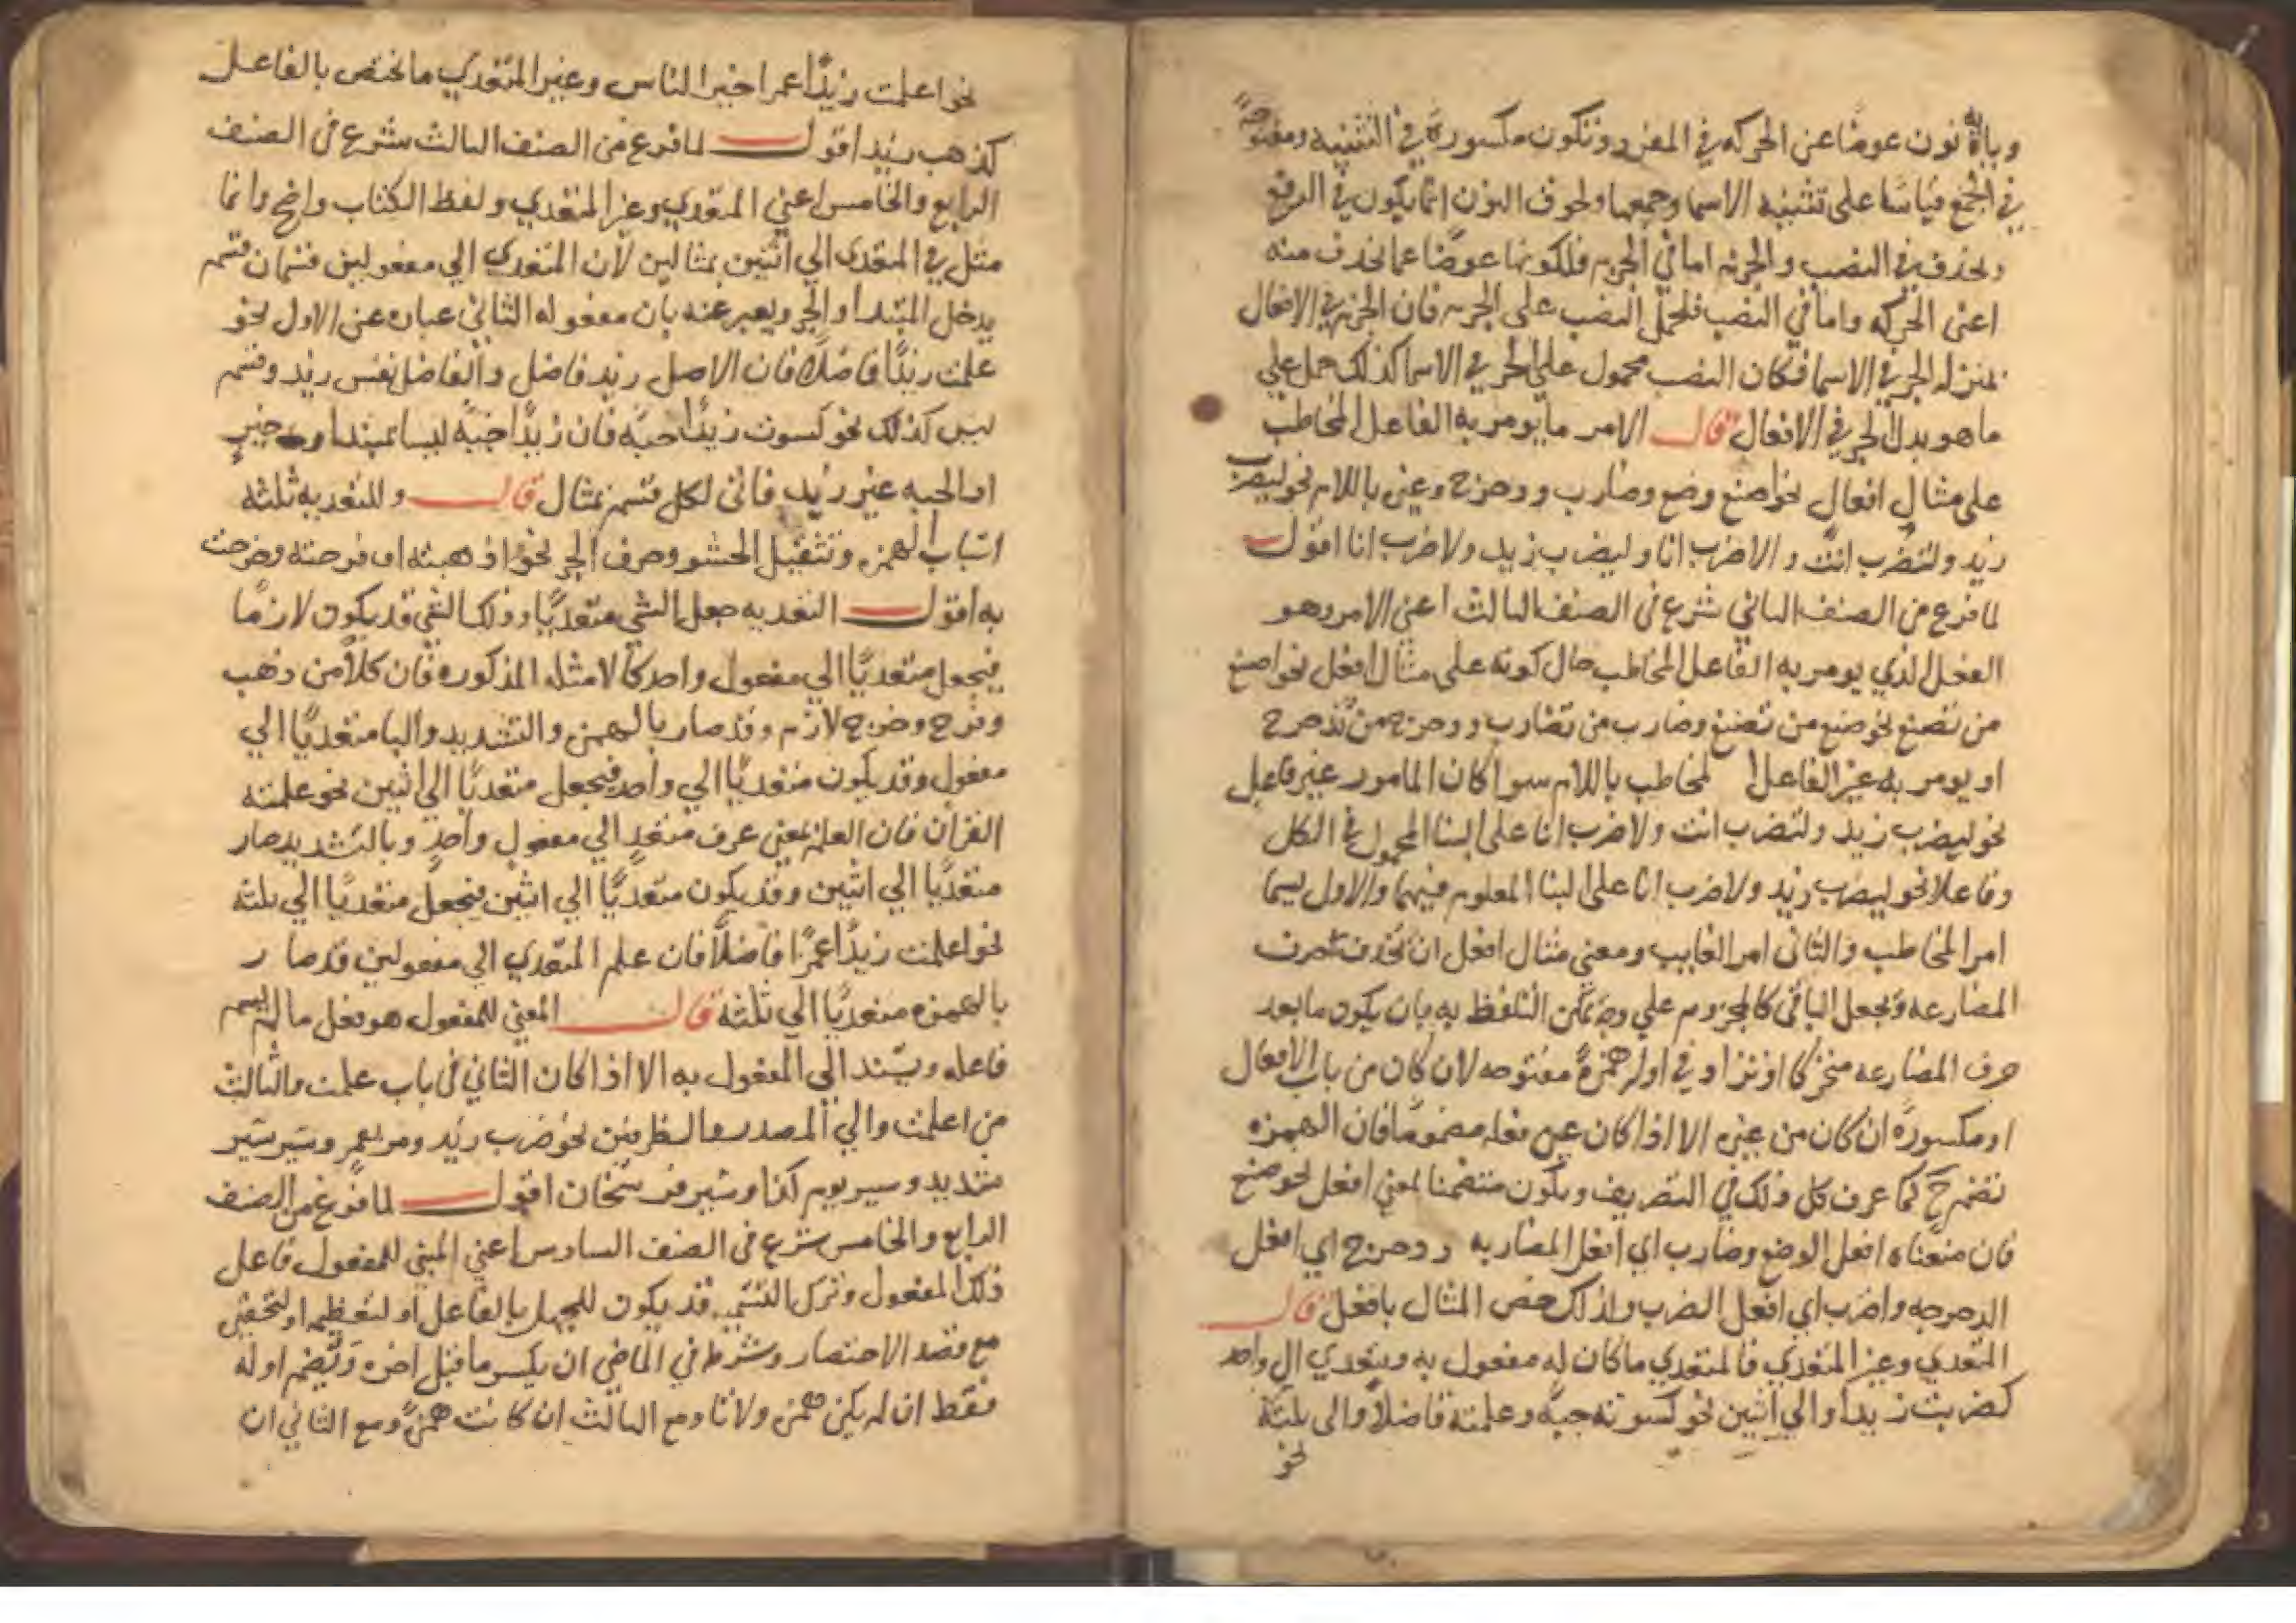 وياؤه نون عوضا عن الحركه في المفرد وتكون مكسورة في التثنيه ومفتوحة
في الجمع قياسا على تثنيه الاسما وجمعها ولحوق النون انما يكون في الرفع
ويحذف في النصب والجزم اما في الجزم فلكونها عوضا عما يحذف منه
اعنى الحركه واما في النصب فلحمل النصب على الجزم فان الجزم في الافعال
بمنزله الجر في الاسما فكان النصب محمول على الجر في الاسما كذلك حمل علي
ما هو بدل الجر في الافعال قال الامر ما يومر به الفاعل المخاطب
على مثال افعل نحو اصنع وضع وضارب ودحرج وغيره باللام نحو ليضرب
زيد ولتضرب انت ولاضرب انا وليضرب زيد ولاضرب انا اقول
لما فرع من الصنف الثاني شرع في الصنف الثالث اعني الامر وهو
الفعل الذي يومر به الفاعل المخاطب حال كونه على مثال افعل نحو اصنع
من تصنع نحو ضع من تضع وضارب من تضارب ودحرج من تدحرج
او يومر به غير الفاعل المخاطب باللام سوا كان المامور غير فاعل
نحو ليضرب زيد ولتضرب انت ولاضرب انا على البنا المجهول في الكل
وفاعلا نحو ليضرب زيد ولاضرب انا على البنا المعلوم فيهما والاول يسما
امر المخاطب والثانى امر الغايب ومعني مثال افعل ان تحذف حرف
المضارعه وتجعل الباقي كالمجزوم علي وجه يمكن التلفظ به بان يكون ما بعد
حرف المضارعه متحركا او تزاد في اوله همزة مفتوحه لان كان من باب الافعال
او مكسورة ان كان من غيره الا اذا كان عين فعله مضموما فان الهمزه
تضم ح كما عرف كل ذلك في التصريف ويكون متضمنا لمعني افعل نحو ضع
فان معناه افعل الوضع وضارب اي افعل المضاربه ودحرج اي افعل
الدحرجه واضرب اي افعل الضرب ولذلك خص المثال بافعل قال
المتعدي وغير المتعدي فالمتعدي ما كان له مفعول به ويتعدي الى واحد
كضربت زيدا والي اثنين نحو كسوته جبة وعلمته فاضلا والى ثلثة
نحو
نحو اعلمت زيدا عمرا خير الناس وغير المتعدي ما يختص بالفاعل
كذهب زيد اقول لما فرع من الصنف الثالث شرع في الصنف
الرابع والخامس اعني المتعدي وغير المتعدي ولفظ الكتاب واضح وانما
مثل في المتعدى الي اثنين بمثالين لان المتعدي الي مفعولين قسمان قسم
يدخل المبتدا والخبر ويعبر عنه بان مفعوله الثاني عباره عن الاول نحو
علمت زيدا فاضلا فان الاصل زيد فاضل والفاضل نفس زيد وقسم
ليس كذلك نحو كسوت زيدا جبة فان زيدا جبة ليسا بمبتدا وخبر
اذ الجبه غير زيد فاتى لكل قسم بمثال قال وللتعديه ثلثه
اسباب الهمزه وتثقيل الحشو وحرف الجر نحو اذهبته او فرحته وخرجت
به اقول التعديه جعل الشي متعديا وذلك الشي قد يكون لازما
فيجعل متعديا الي مفعول واحد كالامثله المذكوره فان كلا من ذهب
وفرح وخرج لازم وقد صار بالهمزه والتشديد والبا متعديا الي
مفعول وقد يكون متعديا الي واحد فيجعل متعديا الي اثنين نحو علمته
القران فان العلم بمعني عرف متعد الي مفعول واحد وبالتشديد صار
متعديا الي اثنين وقد يكون متعديا الي اثنين فيجعل متعديا الي ثلثه
نحو اعلمت زيدا عمرا فاضلا فان علم المتعدي الي مفعولين قد صار
بالهمزه متعديا الي ثلثه قال المبني للمفعول هو فعل ما لم يسم
فاعله ويسند الي المفعول به الا اذا كان الثاني في باب علمت والثالث
من اعلمت والي المصدر والظرفين نحو ضرب زيد ومر بعمر وسير سير
شديد وسير يوم كذا وسير فرسخان اقول لما فرغ من الصنف
الرابع والخامس شرع في الصنف السادس اعني المبني للمفعول فاعل
ذلك المفعول وترك التسمية قد يكون للجهل بالفاعل او لتعظيمه او لتحقيره
مع قصد الاختصار وشرط في الماضي ان يكسر ما قبل اخره وتضم اوله
فقط ان لم يكن همزة ولا تا ومع الثالث ان كانت همزة ومع الثاني ان